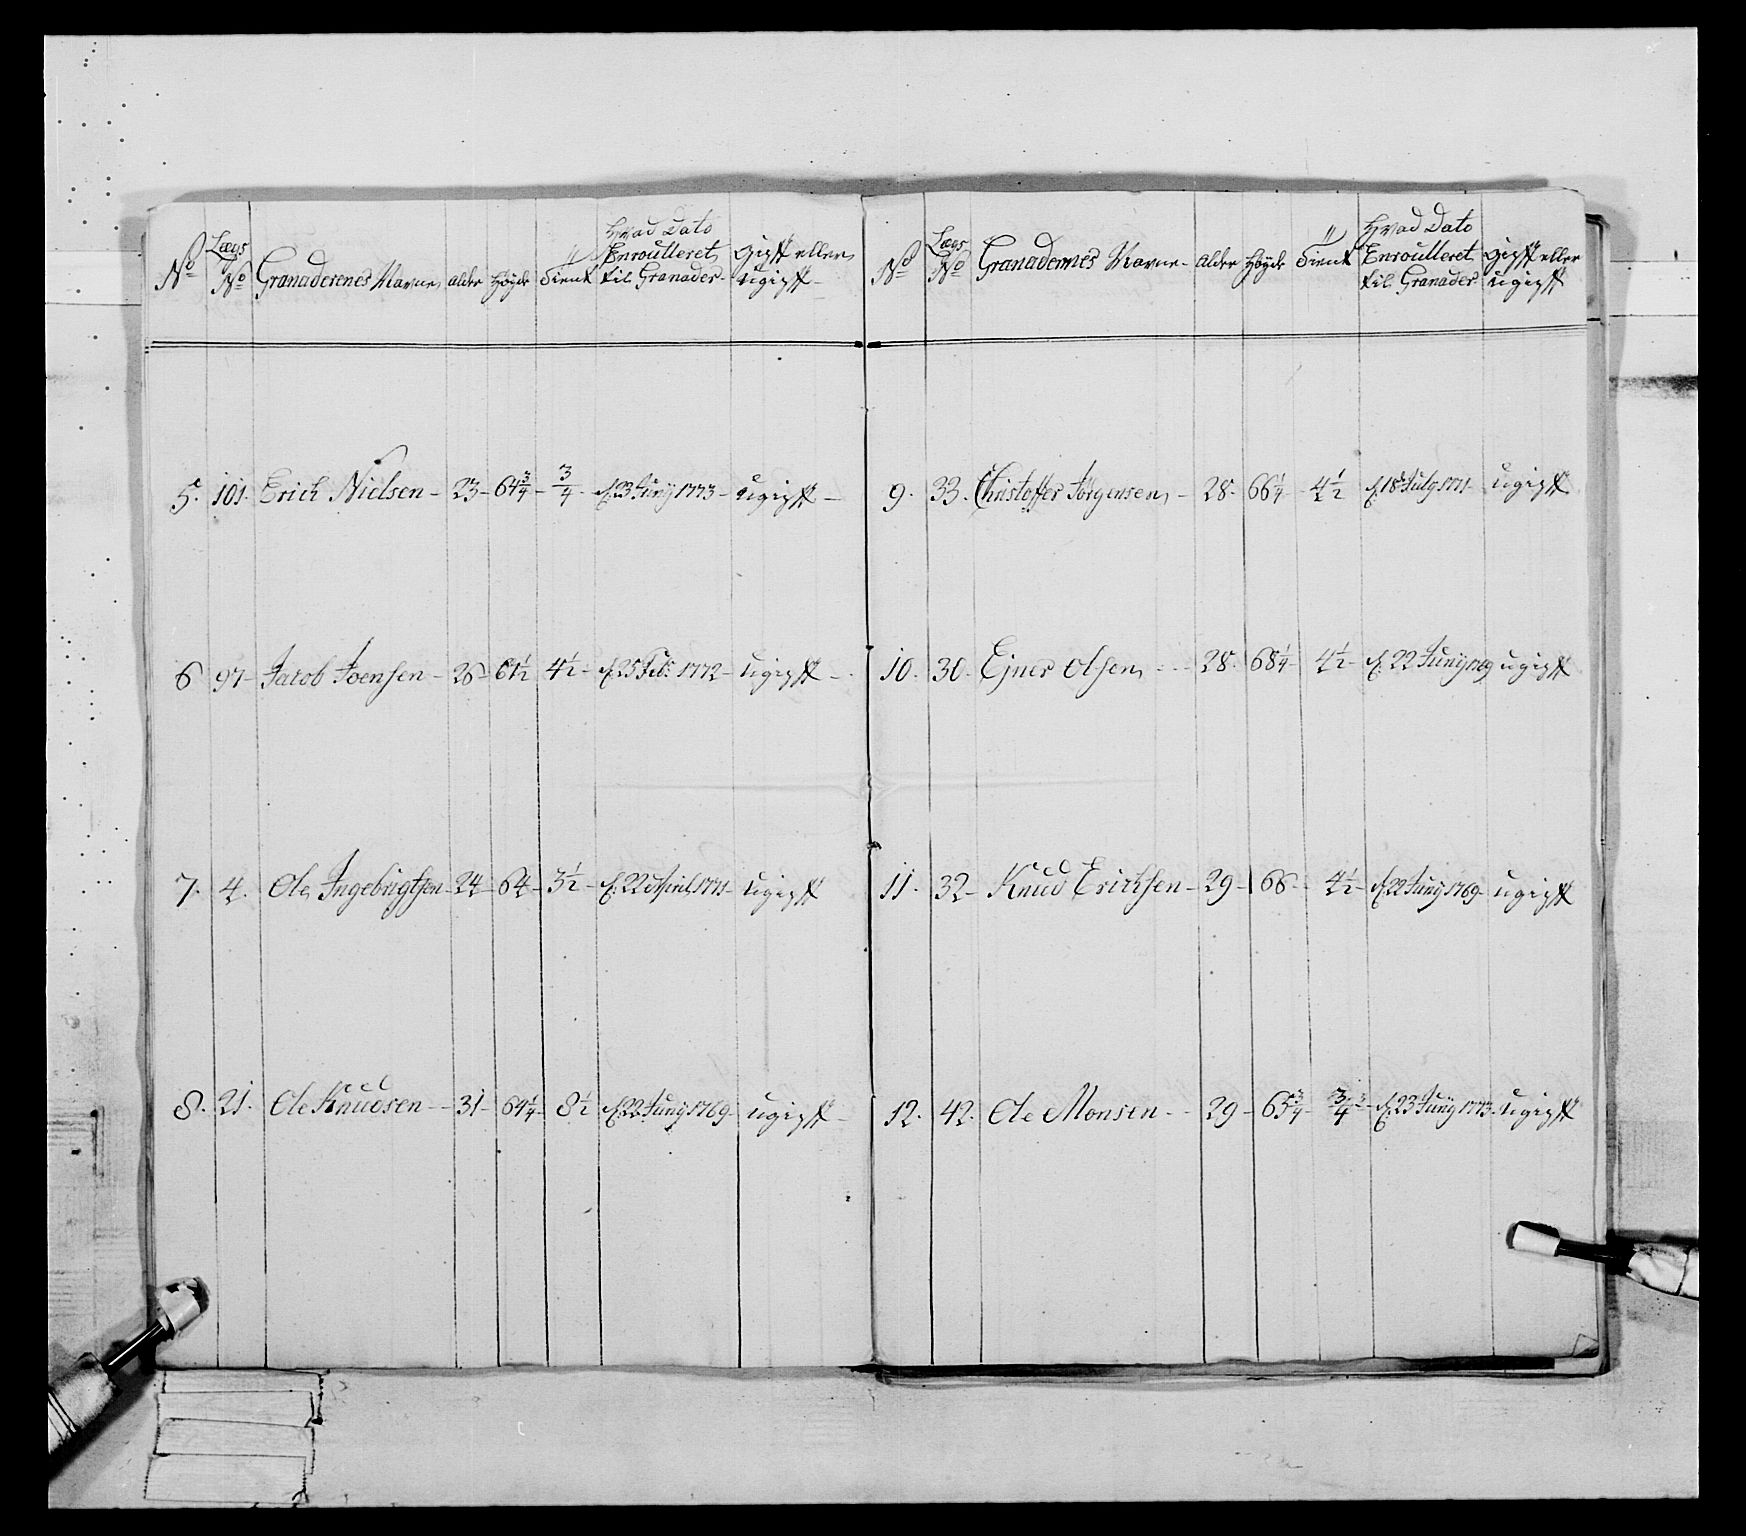 No Lægs No Granaderenes Navne alder Höyde Tient Hvad Dato Enroulleret til Granader Gipft eller ugipft
5. 101. Erich Nielsen - 23 - 64 3/4 - 3/4 - d. 23 Junÿ 1773 - ugipft -
6 97 - Jacob Joensen - 26 - 61 1/2 4 1/2 - d. 25 Feb: 1772 - ugipft -
7. 4. Ole Ingebrigtsen - 24 - 64 - 3 1/2 - d. 22 Apriel 1771 - ugipft
8. 21. Ole Knudsen - 31 - 64 1/4 - 8 1/2 d. 22 Junÿ 1769 - ugipft -
No Lægs No Granadernes Navne - alder Höyde Tient Hvad Dato Enroulleret til Granader Gipft eller ugipft
9. 33. Christoffer Jörgensen - 28 - 66 1/4 - 4 1/2 d. 18 July 1771 - ugipft
10. 30. Ejner Olsen - - 28. 68 1/4 - 4 1/2 - d. 22 Junÿ 1769 ugipft
11. 32 - Knud Erichsen - 29 - 66 - 4 1/2 - d. 22 Junÿ 1769 - ugipft
12. 42. Ole Monsen - 29 - 65 3/4 - 3/4 - d. 23 Junÿ 1773. ugipft